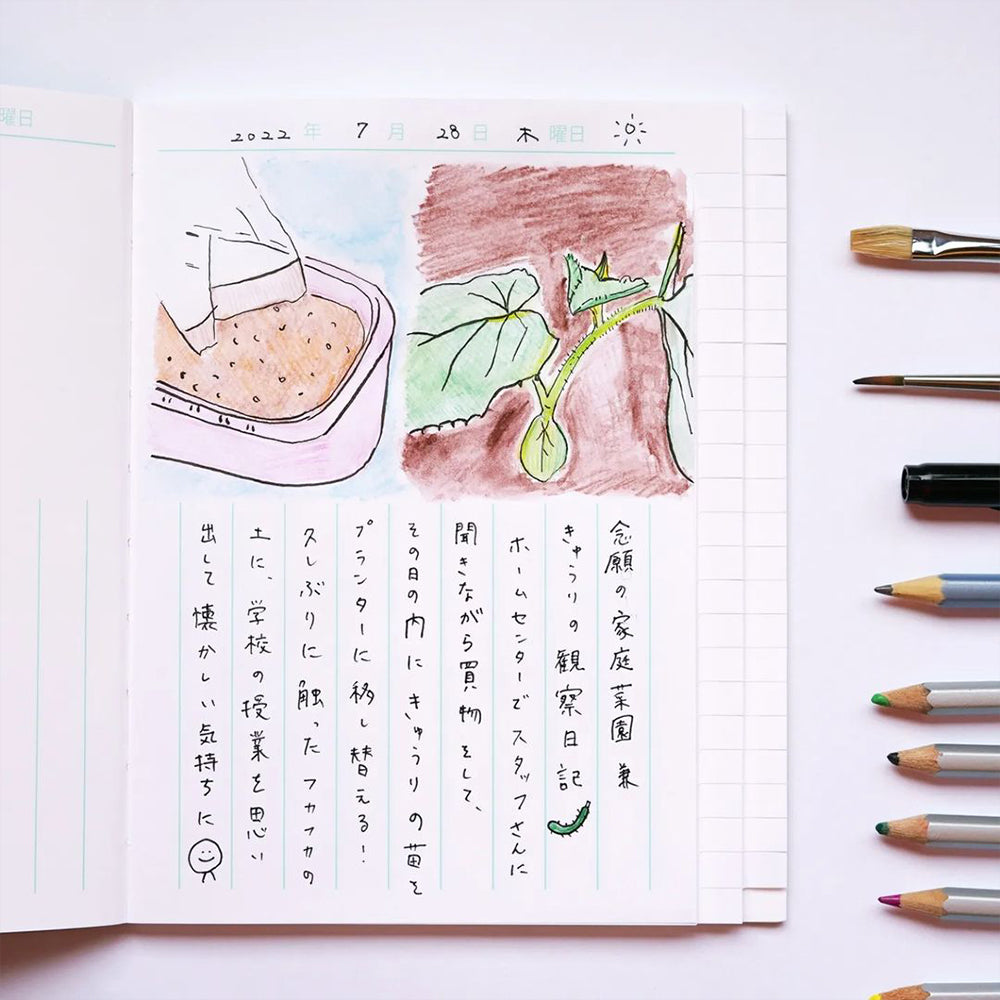 曜日
2022年 7月 28日 木曜日
念願の家庭菜園 兼
きゅうりの観察日記
ホームセンターでスタッフさんに
聞きながら買物をして、
その日の内にきゅうりの苗を
プランターに移し替える!
久しぶりに触ったフカフカの
土に、学校の授業を思い
出して懐かしい気持ちに